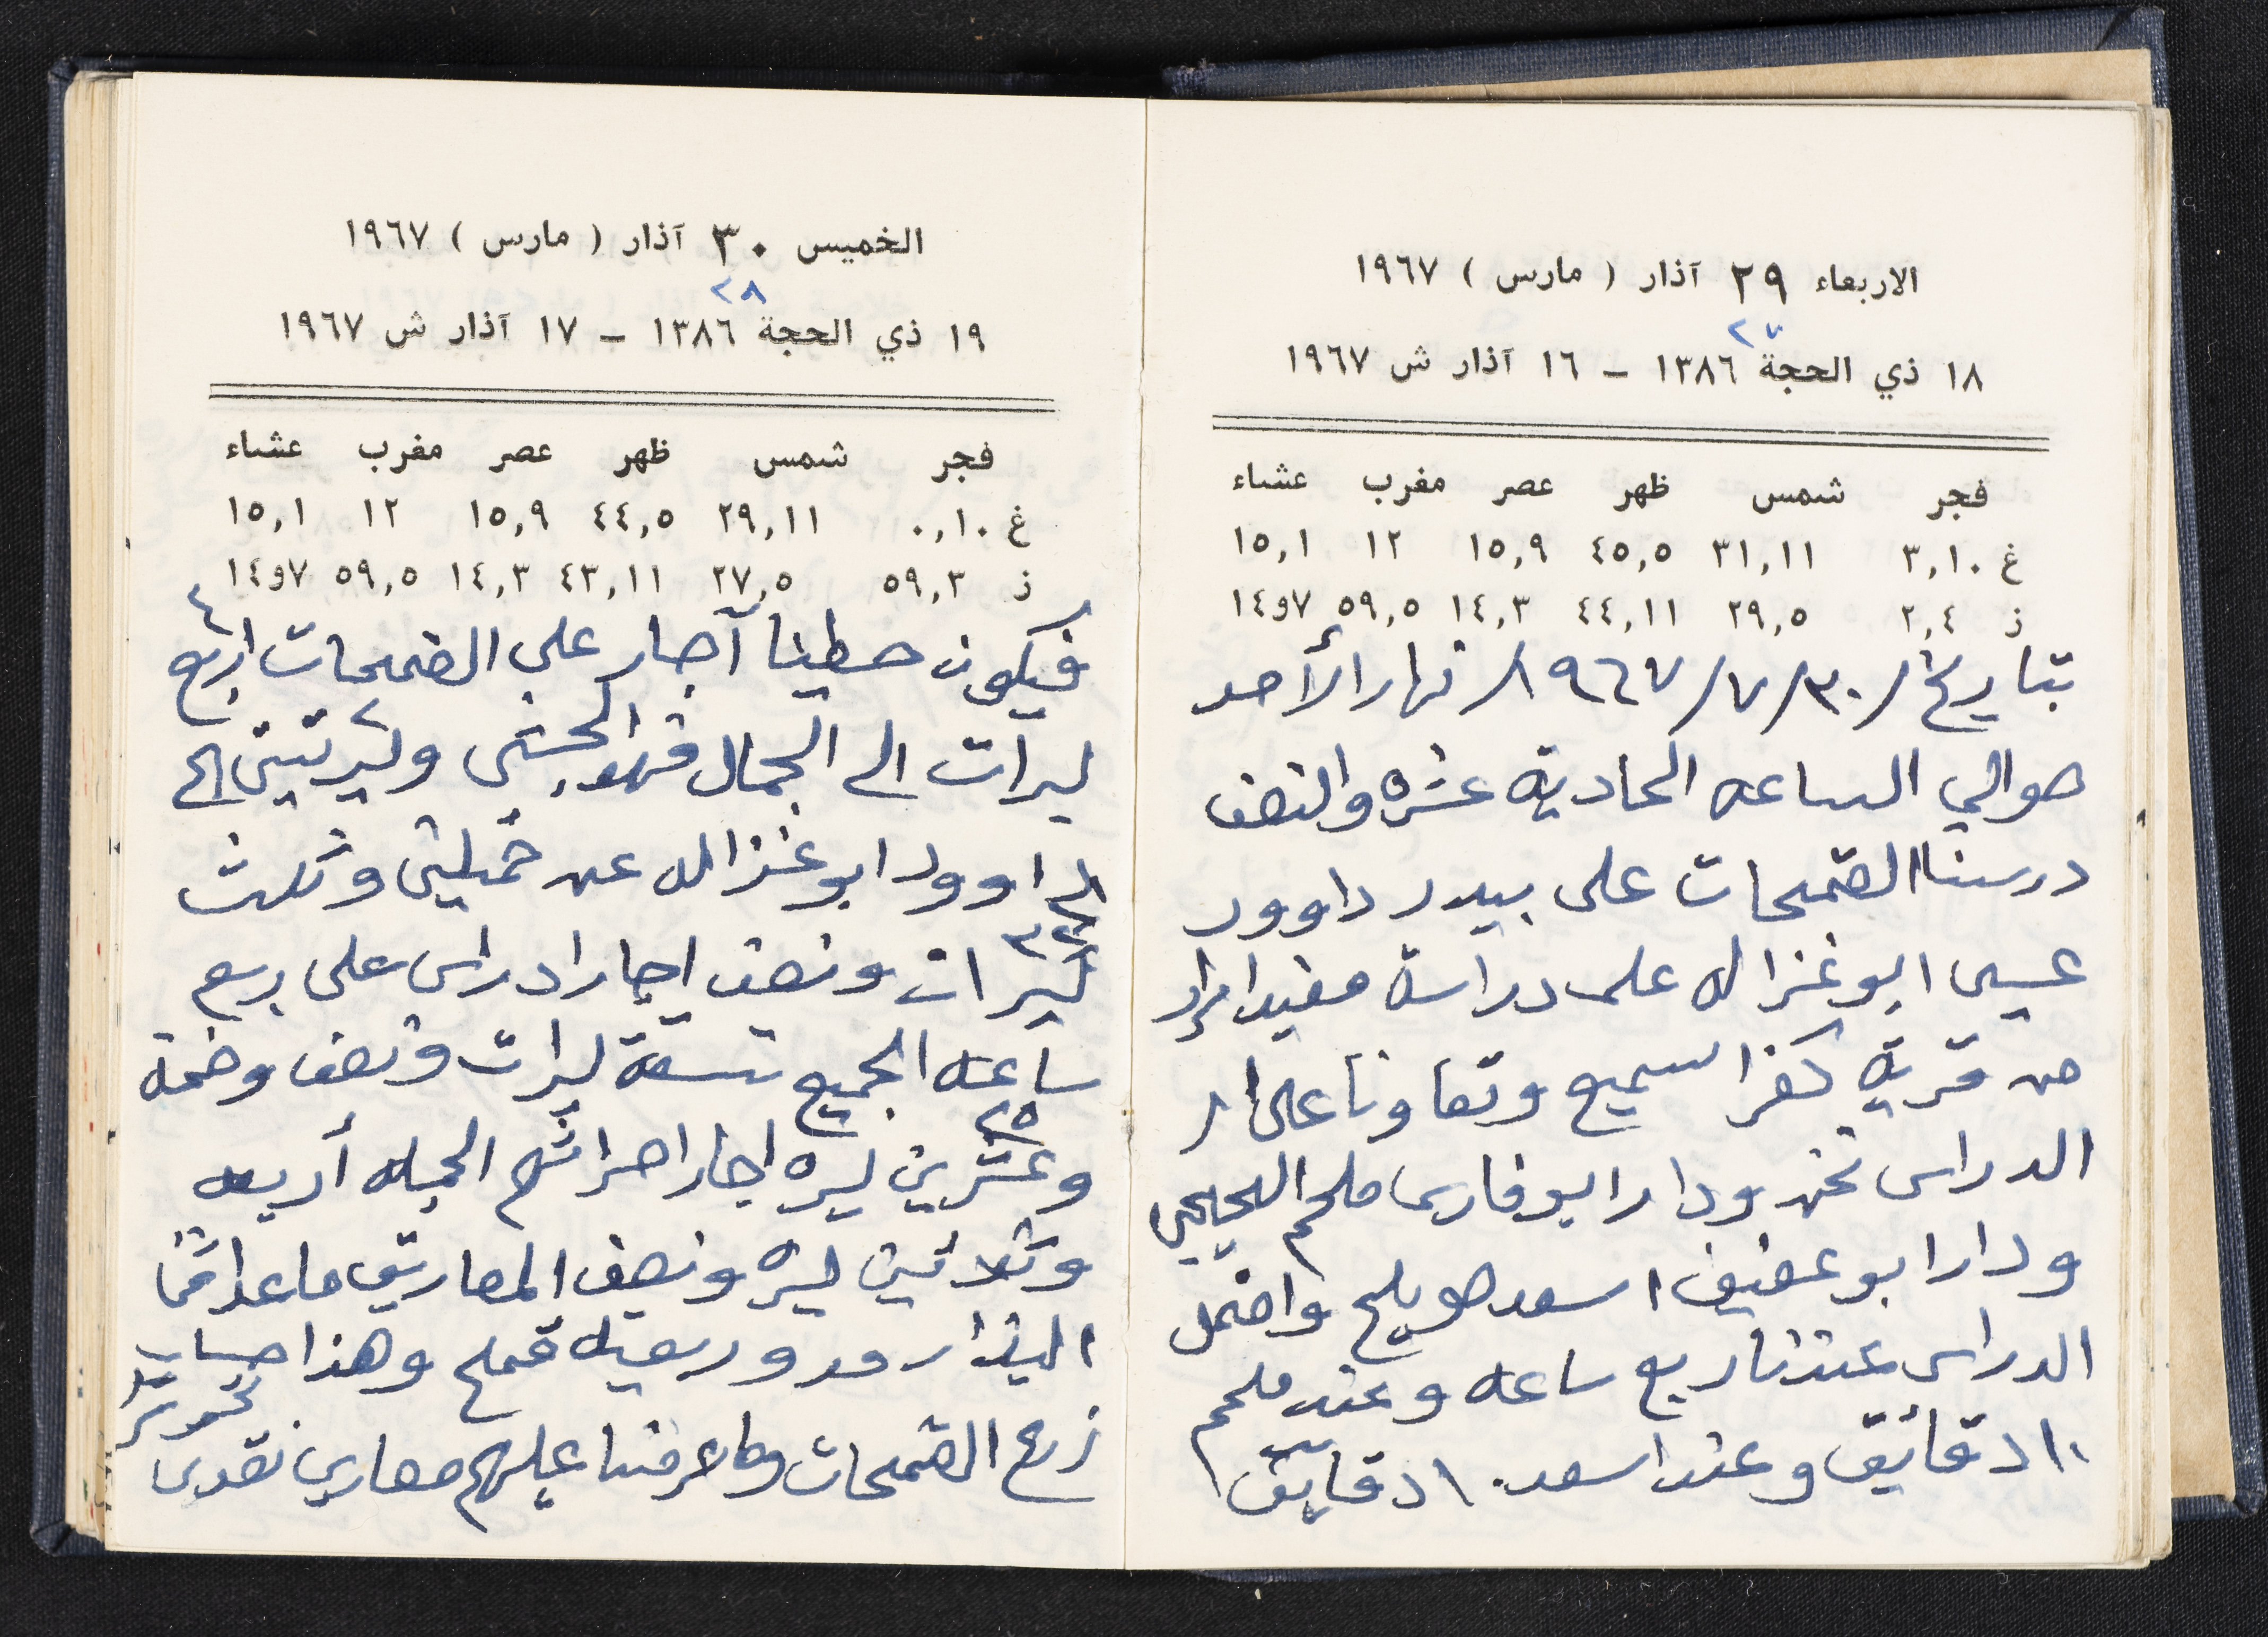 الاربعاء ٢٩ آذار ( مارس ) ١٩٦٧
٢٧
١٨ ذي الحجة ١٣٨٦ ــ ١٦ آذار ش ١٩٦٧
فجر شمس ظهر عصر مغرب عشاء
غ ٣,١٠ ٣١,١١ ٤٥,٥ ١٥,٩ ١٢ ١٥,١
ز ٢,٤ ٢٩,٥ ٤٤,١١ ١٤,٣ ٥٩,٥ ١٤و٧
بتاريخ /٣٠/٧/١٩٦٧ نهار الأحد
حوالي الساعه الحاديه عشره والنصف
درسنا القمحات على بيدر داوود
عيسى ابو غزاله على دراسة مفيد
من قرية كفر اسميع وتعاونا على
الدراس نحن ودار ابو فارس ملحم
ودار ابو عفيف اسعد هويلح
الدراس عندنا ربع ساعه وعند ملحم
١٠ دقائق وعند اسعد ١٠ دقايق
الخميس ٣٠ آذار ( مارس ) ١٩٦٧
٢٨
١٩ ذي الحجة ١٣٨٦ ــ ١٧ آذار ش ١٩٦٧
فجر شمس ظهر عصر مغرب عشاء
غ ٠,١٠ ٢٩,١١ ٤٤,٥ ١٥,٩ ١٢ ١٥,١
ز ٥٩,٣ ٢٧,٥ ٤٣,١١ ١٤,٣ ٥٩,٥ ١٤و٧
٤
فيكون حطينا آجار على القمحات اربع
ليرات الى الجمال وليرتين الى
داوود ابو غزاله عن وثلث
ليرات ونصف اجار ادراس على ربع
ساعه الجميع تسعة ليرات ونصف وخمة
٢٥
وعشرين ليره اجار احراثهم الجمله أربعه
وثلاثين ليره ونصف المصاريف ما عدا
البذار مد وربعيه قمح وهذا حساب
زرع القمحات عليهم مصاريف نقدي